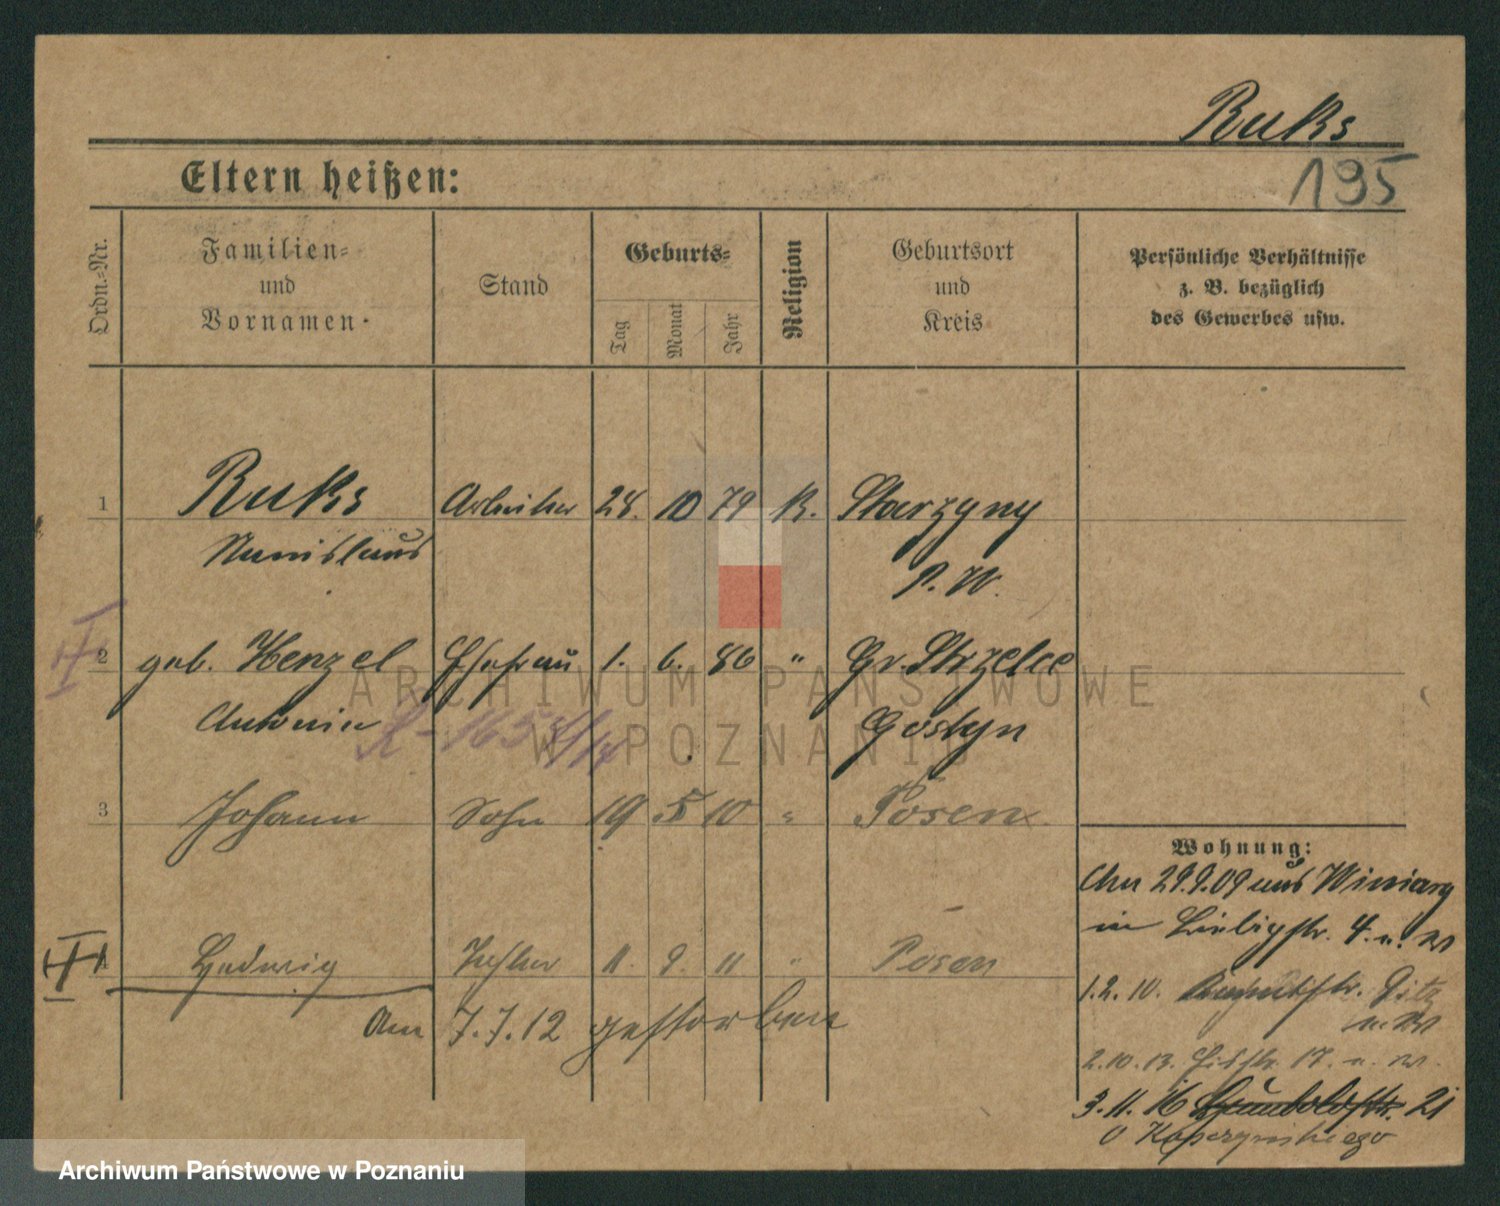 Ruks
195
Eltern heißen:
Ordn.-Nr.
Familien-
und
Vornamen.
Stand
Geburts-
Tag
Monat
Jahr
Religion
Geburtsort
und
Kreis
Persönliche Verhältnisse
z. B. bezüglich
des Gewerbes usw.
1 Ruks Arbeiter 28. 10 79 K. Starzyny
Stanislaus P. W.
2 geb. Henzel Ehefrau 1. 6. 86 " Gr. Strzelce
Antonie Gostyn
3 Johann Sohn 19 5 10 " Posen
4 Hedwig Tochter 11. 9. 11 " Posen
Am 7.7.12 gestorben
Wohnung:
Am 29.9.09 aus Winiary
in Liebigstr. 4. u. W
1.2.10.
2.10.13. 17. u. W.
3.11.16 Humboldtstr. 21
ARCHIWUM PAŃSTWOWE
W POZNANIU
Archiwum Państwowe w Poznaniu